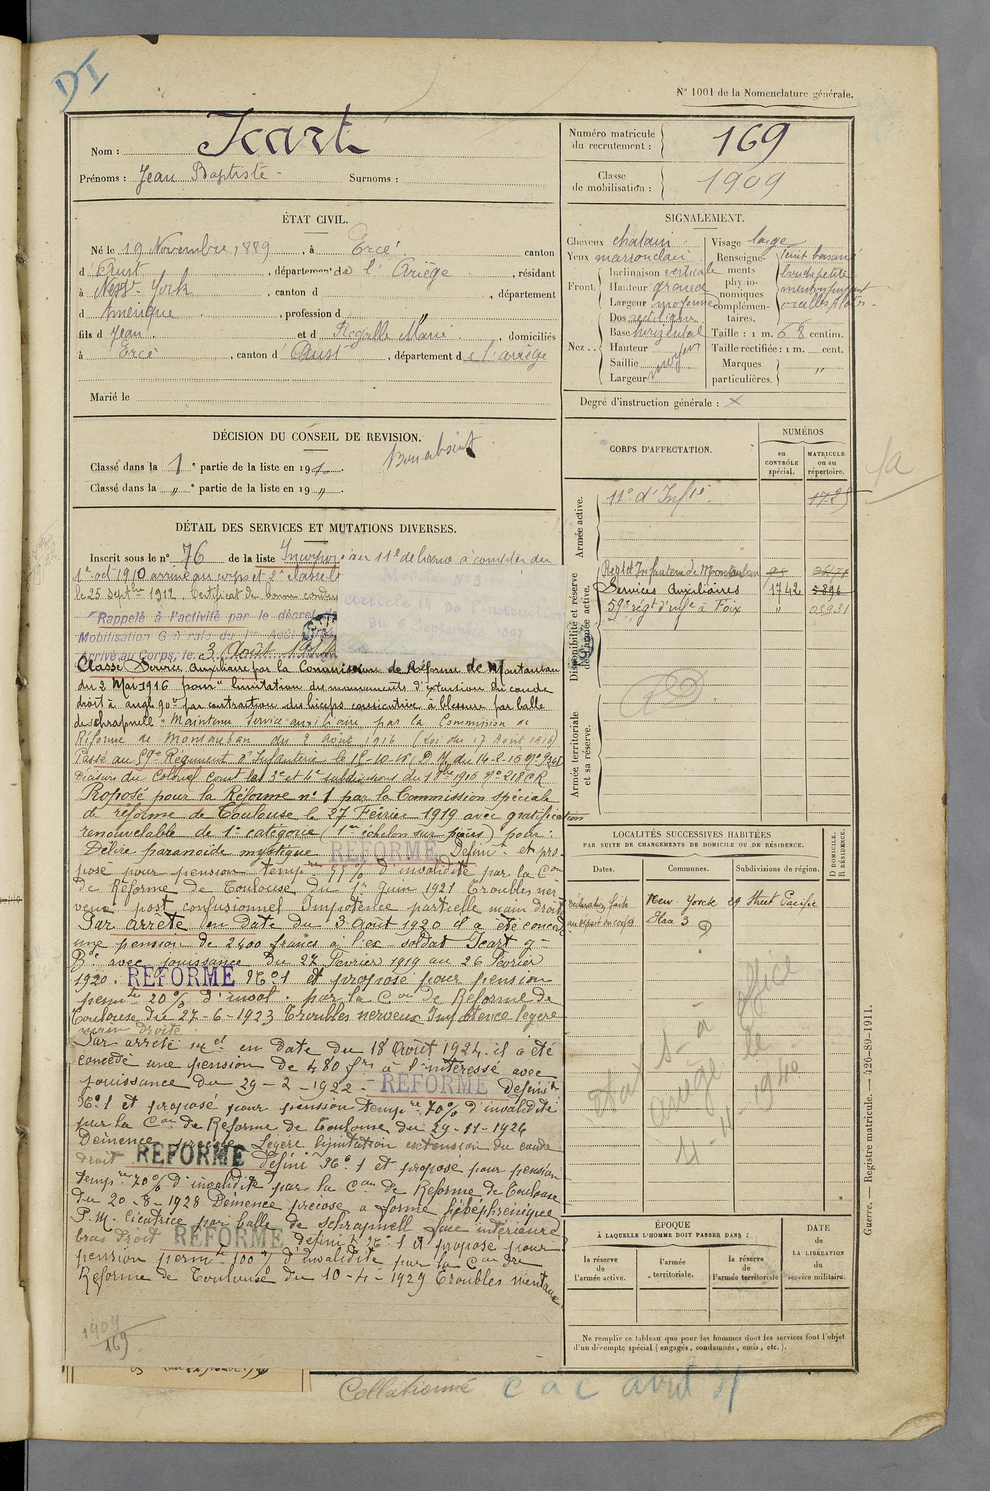 DI
N° 1001 de la Nomenclature générale.
Nom : Icart
Prénoms : Jean Baptiste - Surnoms :
Numéro matricule du recrutement : 169
Classe de mobilisation : 1909
ÉTAT CIVIL.
Né le 19 Novembre 1889, à Ercé canton
d'Oust, département de l'Ariège, résidant
à New York, canton d , département
d Amérique, profession d "
fils d Jean et d Rogalle Marie, domiciliés
à Ercé, canton d'Oust, département de l'ariège
Marié le
SIGNALEMENT.
Cheveux chatain
Yeux marron clair
Front
Inclinaison verticale
Hauteur grand
Largeur moyenne
Nez
Dos rectiligne
Base horizontal
Hauteur
Saillie moyen
Largeur
Visage large
Renseignements physionomiques complémentaires.
teint basané
bouche petite
oreilles plates
Taille : 1 m. 68 centim.
Taille rectifiée : 1 m. cent.
Marques particulières. "
Degré d'instruction générale : X
DÉCISION DU CONSEIL DE REVISION.
Bon absent
Classé dans la 1e partie de la liste en 191 .
Classé dans la " e partie de la liste en 19 " .
CORPS D'AFFECTATION.
NUMÉROS
au CONTRÔLE spécial.
MATRICULE ou au répertoire.
Armée active.
11e d'Infie
Disponibilité et réserve de l'armée active.
Regt d'Infanterie de Montauban
Services Auxiliaires 1742 5896
59e régt d'infie à Foix "
Armée territoriale et sa réserve.
DÉTAIL DES SERVICES ET MUTATIONS DIVERSES.
Inscrit sous le n° 76 de la liste Incorporé au 11e de ligne à compter du
1er oct 1910 arrivé au corps et 2e classe le
le 25 septbre 1912. Certificat de bonne conduite
Modèle N° 3
Article 14 de l'instruction
du 6 Septembre 1897
Rappelé à l'activité par le décret de
Mobilisation Générale du 1er Août 1914
Arrivé au Corps, le 3 Août 1914
Classé Service auxiliaire par la Commission de Réforme de Montauban
du 2 Mai 1916 pour "limitation des mouvements d'extension du coude
droit à angle 90° par contraction des biceps consécutive à blessure par balle
de schrapnell" Maintenu Service auxiliaire par la Commission de
Réforme de Montauban du 2 août 1916 (Loi du 17 Août 1915)
Passé au 59e Régiment d'Infanterie le
Décision du Colonel
Proposé pour la Réforme n° 1 par la Commission spéciale
de réforme de Toulouse le 27 Février 1919 avec gratification
renouvelable de 1re catégorie (1er échelon sur pièces) pour :
Délire paranoïde mystique REFORME Définit et pro-
posé pour pension tempre % d'invalidité par la Con
de Réforme de Toulouse du 1er Juin 1921 Troubles ner
veux post confusionnel Impotence partielle main droite
Par arrêté en date du 3 Août 1920 il a été concédé
une pension de 2400 francs à l'ex-soldat Icart J-
Bte avec jouissance du 27 Février 1919 au 26 Février
1920. REFORME N° 1 et proposé pour pension
permte 20% d'inval. par la Con de Réforme de
Toulouse du 27-6-1923 Troubles nerveux Impotence légère
main droite.
Par arrêté en date du 18 Août 1924 il a été
concédé une pension de 480 frs à l'intéressé avec
jouissance du 29-2-1922 - REFORME Définit
N° 1 et proposé pour pension tempre 70% d'invalidité
par la Con de Réforme de Toulouse du 29-11-1926
Démence précoce Légère limitation extension du coude
droit REFORME Défini N° 1 et proposé pour pension
tempre 70% d'invalidité par la Con de Réforme de Toulouse
du 20-8-1928 Démence précoce à forme hébéphrénique
P.M. Cicatrice par balle de schrapnell face intérieure
bras droit REFORME définit N° 1 et proposé pour
pension permte 100% d'invalidité par la Con de
Réforme de Toulouse du 10-4-1929 Troubles mentaux
LOCALITÉS SUCCESSIVES HABITÉES
PAR SUITE DE CHANGEMENTS DE DOMICILE OU DE RÉSIDENCE.
Dates. Communes. Subdivisions de région. D DOMICILE. R RÉSIDENCE.
New-Yorck 29 Street Pacifie
au départ du corps
Etat s-a office
ariège le
4-11-1940
ÉPOQUE
À LAQUELLE L'HOMME DOIT PASSER DANS :
la réserve de l'armée active.
l'armée territoriale.
la réserve de l'armée territoriale
DATE DE LA LIBÉRATION du service militaire.
Ne remplir ce tableau que pour les hommes dont les services font l'objet
d'un décompte spécial (engagés, condamnés, omis, etc.).
Guerre. — Registre matricule. — 426-89-1911.
1909
169
Collationné
C a C avril